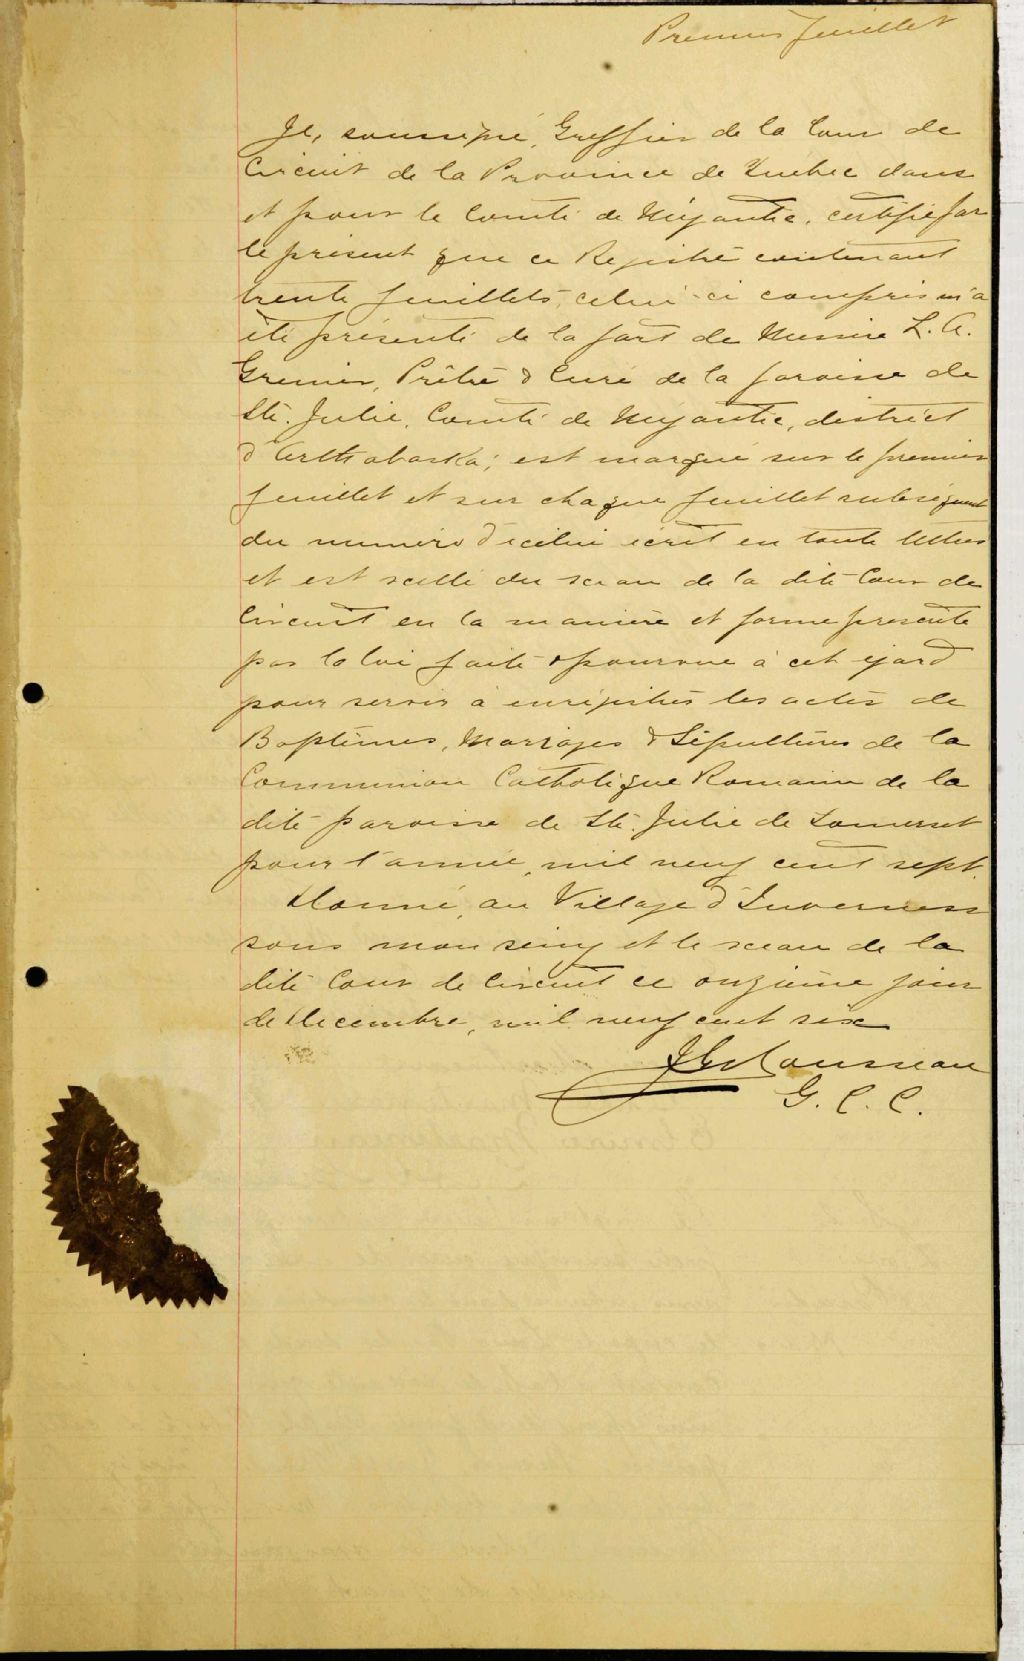 Premier feuillet
Je, soussigné, Greffier de la Cour de
Circuit de la Province de Québec dans
et pour le Comté de Mégantic, certifie par
le présent que ce Registre contenant
trente feuillets, celui-ci compris m'a
été présenté de la part de Messire L. A.
Grenier, Prêtre & Curé de la paroisse de
Ste. Julie, Comté de Mégantic, district
d'Arthabaska; est marqué sur le premier
feuillet et sur chaque feuillet subséquent
du numéro d'icelui écrit en toute lettres
et est scellé du sceau de la dite Cour de
Circuit en la manière et forme prescrite
par la loi faite & pourvue à cet égard
pour servir à enrégistrer les actes de
Baptêmes, Mariages & Sépultures de la
Communion Catholique Romaine de la
dite paroisse de Ste. Julie de Somerset
pour l'année, mil neuf cent sept.
Donné, au Village d'Inverness
sous mon seing et le sceau de la
dite Cour de Circuit ce onzième jour
de Décembre, mil neuf cent six
Rousseau
G. C. C.